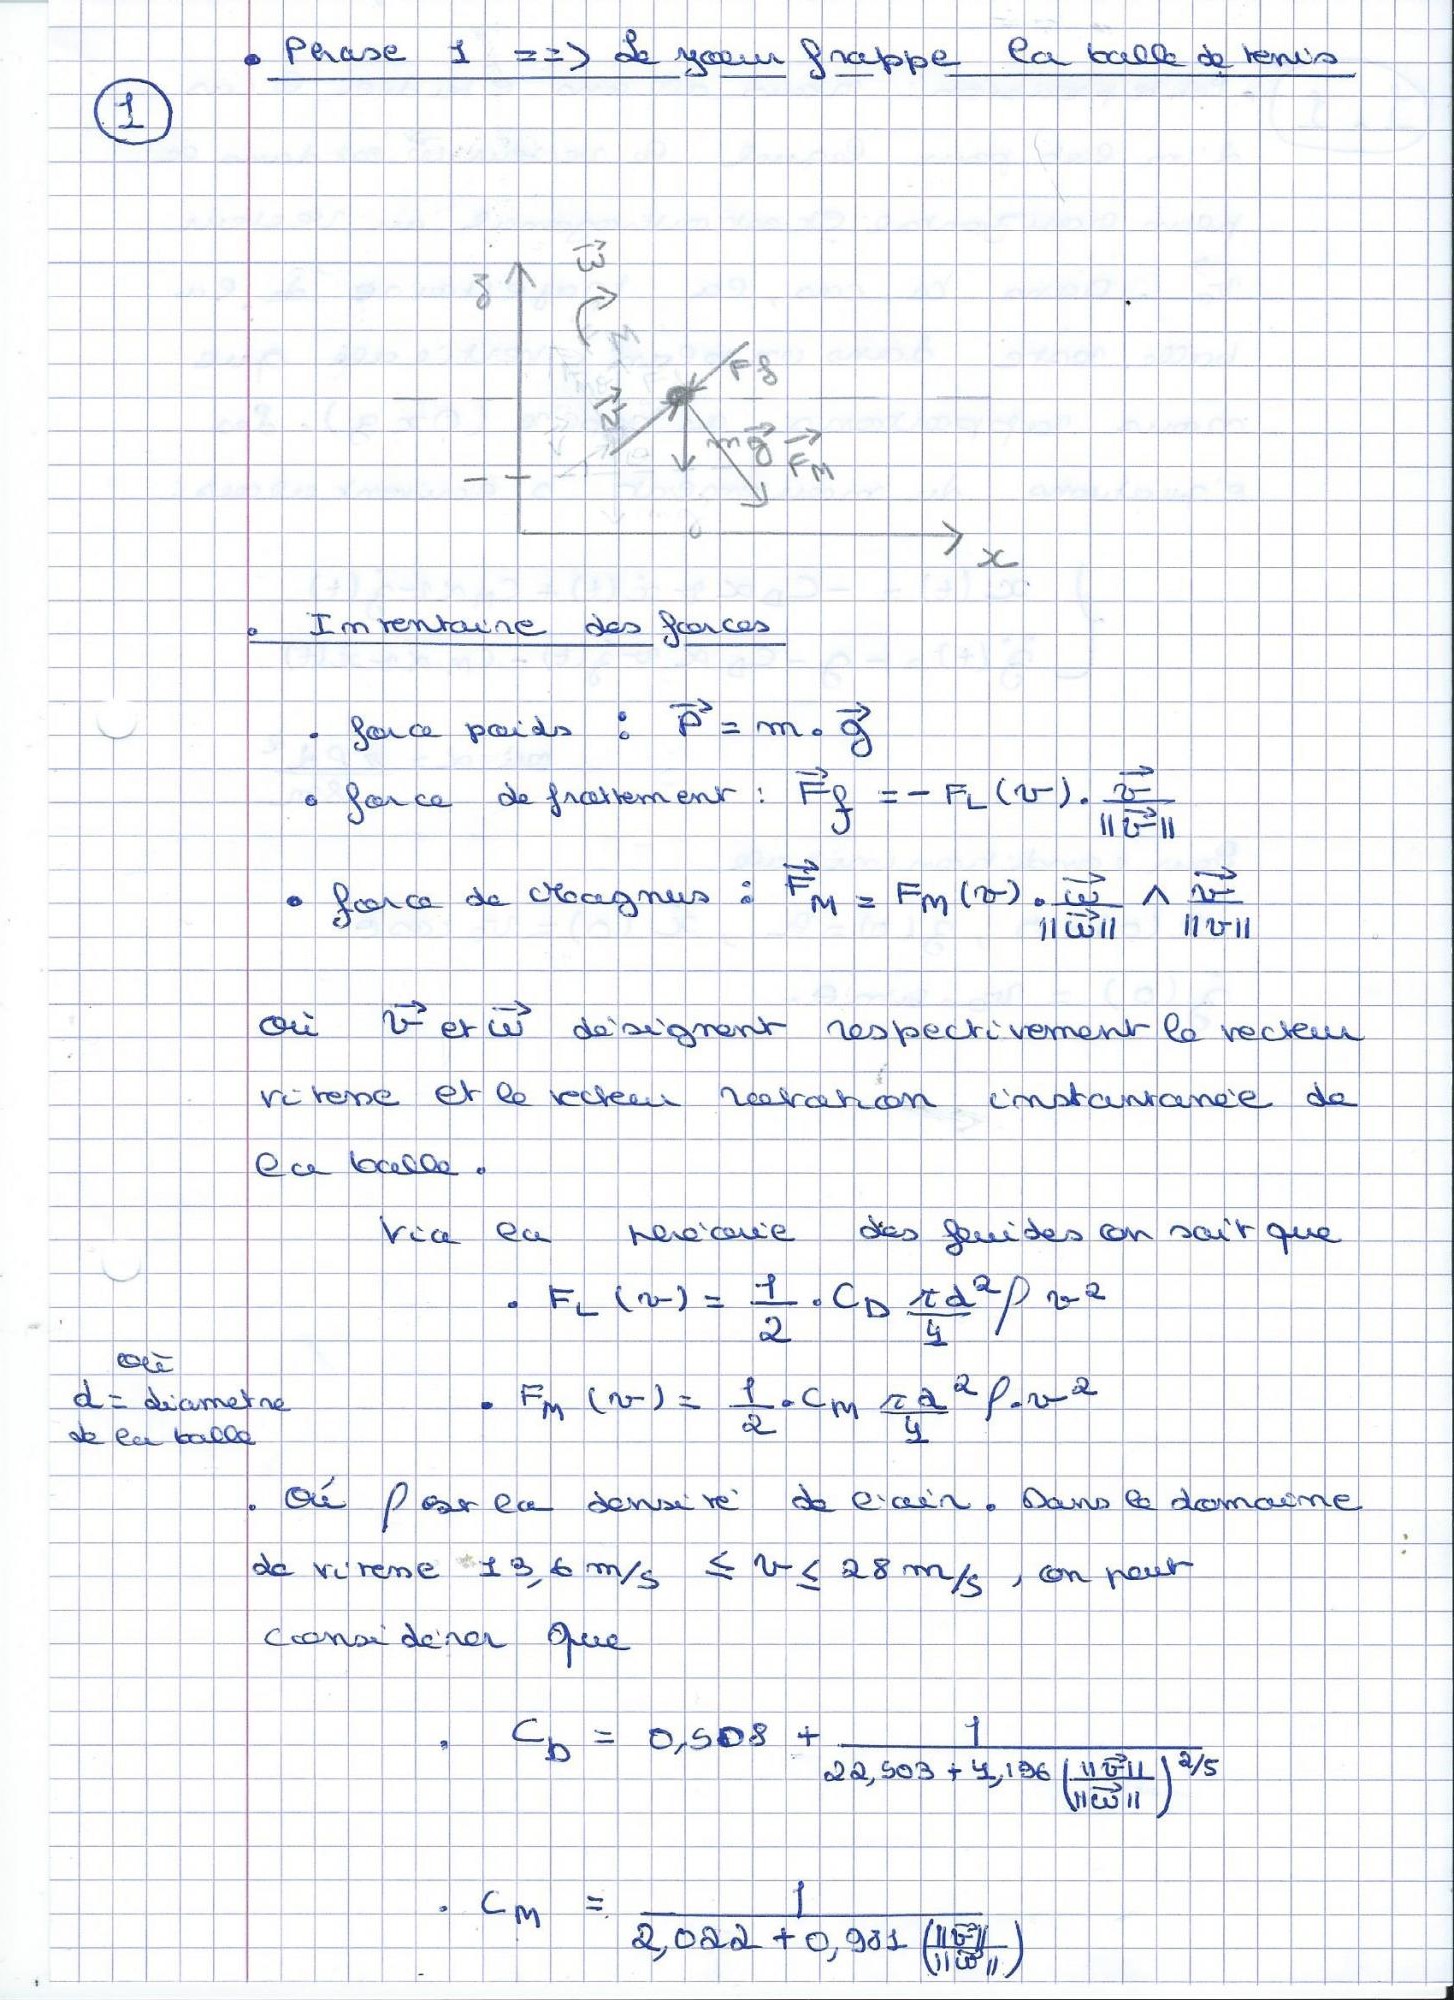 • Phase 1 ==> Le joueur frappe la balle de tenis
1
z
ω
v
Ff
m g
F_M
x
• Inventaire des forces
• force poids : P = m . g
• force de frottement : Ff = - F_L (v) . v / ||v||
• force de Magnus : F_M = F_M (v) . ω / ||ω|| ∧ v / ||v||
où v et ω désignent respectivement le vecteur
vitesse et le vecteur rotation instantanée de
la balle.
Via la théorie des fluides on sait que
• F_L (v) = 1/2 . C_D πd²/4 ρ v²
où
d = diametre
de la balle
• F_M (v) = 1/2 . C_M πd²/4 ρ . v²
• Où ρ est la densité de l'air. Dans le domaine
de vitesse 13,6 m/s ≤ v ≤ 28 m/s, on peut
considérer que
• C_D = 0,508 + 1 / (22,503 + 4,196 (||v|| / ||ω||)^2/5)
• C_M = 1 / (2,022 + 0,981 (||v|| / ||ω||))